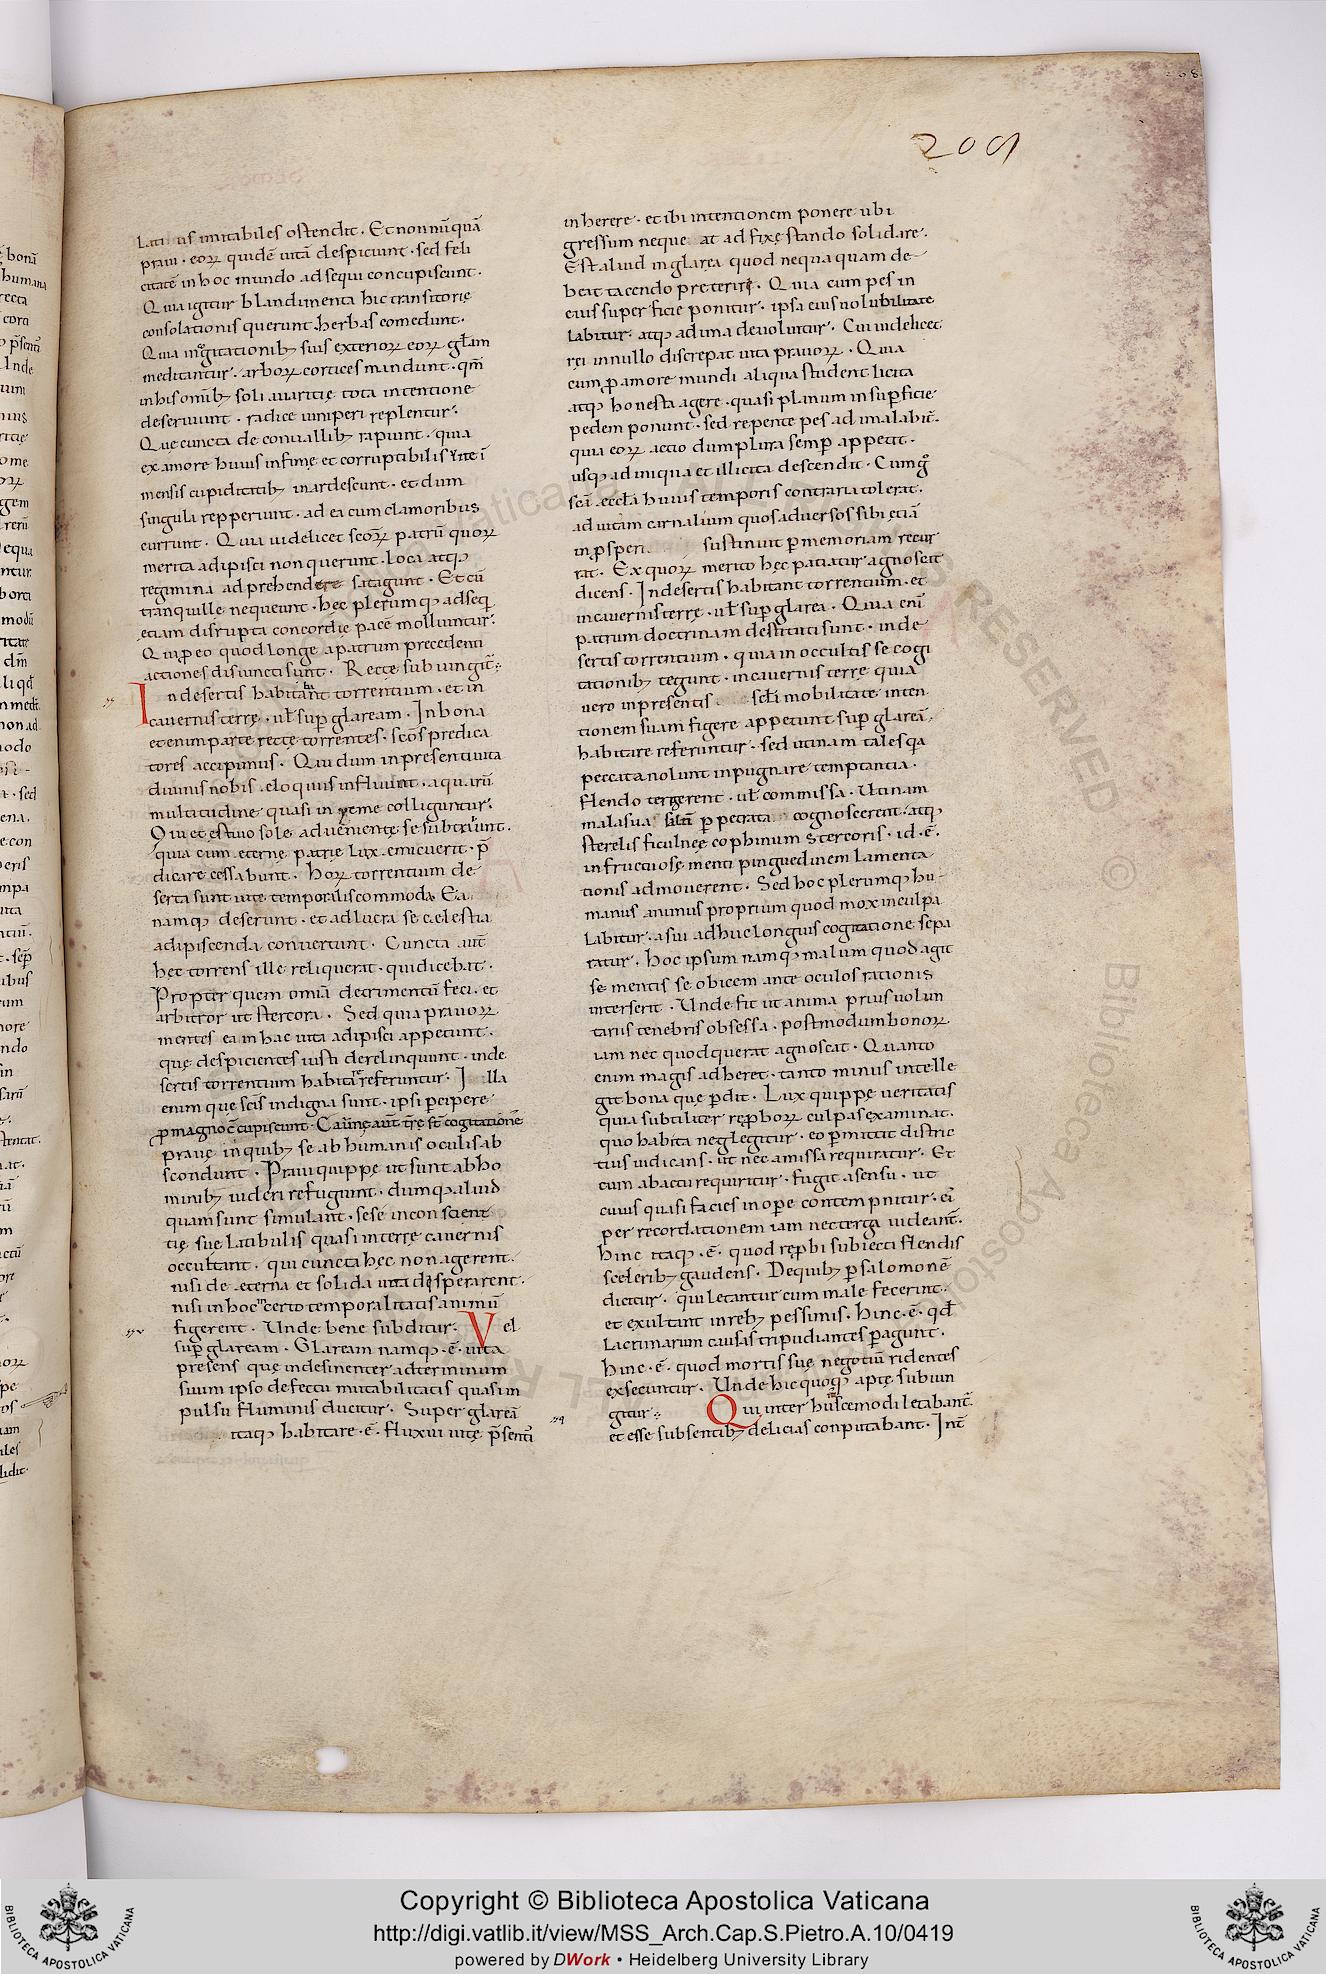 209
us imitabiles ostendit. Et non nū quā
praui. eoꝝ quidē uitā despiciunt. sed feli
citatē in hoc mundo adsequi concupiscunt.
Quia igitur blandimenta hic transitorię
consolationis querunt herbas comedunt.
Quia in cogitationibꝫ suis exterioꝝ eoꝝ głam
meditantur. arboꝝ cortices mandunt. qm̄
in his omībꝫ soli auaritię tota intentione
deseruiunt. radice iuniperi replentur.
Que cuncta de conuallibꝫ rapiunt. quia
ex amore huius infimę et corruptibilis uite ī
mensis cupiditatibꝫ inardescunt. et dum
singula repperiunt. ad ea cum clamoribus
currunt. Quia uidelicet scōꝝ patrū quoꝝ
merita adipisci non querunt. loca atqꝫ
regimina adprehendere satagunt. Et cū
tranquille nequeunt. hec plerumqꝫ adseqi
etiam disrupta concordie pacē molliuntur.
Qui ꝓ eo quod longe a patrum precedenti
actiones disiuncti sunt. Recte subiungit̄.
In desertis habitant torrentium. et in
cauernis terrę. ul̄ sup̄ glaream. In bona
etenim parte recte torrentes. scōs predica
tores accipimus. Qui dum in presenti uita
diuinis nobis eloquiis influunt. aquarū
multitudine quasi in yeme colliguntur.
Qui et estiuo sole adueniente se subtrahunt.
quia cum eterne patrię lux emicuerit. p̄
dicare cessabunt. Hoꝝ torrentium de
serta sunt uite temporalis commoda. Ea
namqꝫ deserunt. et ad lucra se celestia
adipiscenda conuertunt. Cuncta aut̄
hec torrens ille reliquerat. qui dicebat.
Propter quem omnia detrimentū feci. et
arbitror ut stercora. Sed quia prauoꝝ
mentes ea in hac uita adipisci appetunt.
quę despicientes iusti derelinquunt. inde
sertis torrentium habitare referuntur. Illa
enim que scīs indigna sunt. ipsi percipere
ꝓ magno cōcupiscunt. Cauernę aut̄ trę st̄ cogitationes
prauę in quibꝫ se ab humanis oculis ab
scondunt. Praui quippe ut sunt ab ho
minibꝫ uideri refugiunt. dumqꝫ aliud
quam sunt simulant. sese in conscien
tię suę latibulis quasi in terrę cauernis
occultant. qui cuncta hęc non agerent.
nisi de eterna et solida uita desperarent.
nisi in hoc incerto temporalitatis animū
figerent. Unde bene subditur. Vel
sup̄ glaream. Glaream namqꝫ .ē. uita
presens quę indesinenter ad terminum
suum ipso defectu mutabilitatis quasi in
pulsu fluminis ducitur. Super glareā
itaqꝫ habitare .ē. fluxui uitę p̄senti
inherere. et ibi intentionem ponere ubi
gressum neque at ad fixe stando solidare.
Est aliud in glarea quod nequaquam de
beat tacendo preterire. Quia cum pes in
eius superficie ponitur. ipsa eius uolubilitate
labitur. atqꝫ ad ima deuoluitur. Cui uidelicet
rei in nullo discrepat uita prauoꝝ. Quia
cum ꝓ amore mundi aliqua student licita
atqꝫ honesta agere. quasi planum in sup̄ficie
pedem ponunt. sed repente pes ad ima labit̄.
quia eoꝝ actio dum plura semp̄ appetit.
usqꝫ ad iniqua et illicita descendit. Cum g̊
scā eccła huius temporis contraria tolerat.
ad uitam carnalium quos aduersos sibi etiā
in ꝓsperi sustinuit p̲ memoriam recur
rat. Ex quoꝝ merito hęc patiatur agnoscit
dicens. In desertis habitant torrentium. et
in cauernis terrę. ul̄ sup̄ glarea. Quia eni
patrum doctrinam destituti sunt. in de
sertis torrentium. quia in occultis se cogi
tationibꝫ tegunt. in cauernis terrę quia
uero in presentis secłi mobilitate inten
tionem suam figere appetunt sup̄ glareā.
habitare referuntur. sed utinam tales qa
peccata nolunt inpugnare temptantia.
flendo tergerent. ul̄ commissa. Utinam
mala sua saltī perpetrata cognoscerent. atqꝫ
sterelis ficulneę cophinum stercoris. id .ē.
infructuosę menti pinguedinem lamenta
tionis admouerent. Sed hoc plerumqꝫ hu
manus animus proprium quod mox in culpa
labitur. a sui adhuc longius cogitatione sepa
ratur. hoc ipsum namqꝫ malum quod agit
se mentis se obicem ante oculos rationis
interserit. Unde fit ut anima prius uolun
tariis tenebris obsessa. postmodum bonoꝝ
iam nec quod querat agnoscat. Quanto
enim magis adheret. tanto minus intelle
git bona quę perdit. Lux quippe ueritatis
quia subtiliter rep̄boꝝ culpas examinat.
quo habita neglegitur. eo p̲mittit distric
tius iudicans. ut nec amissa requiratur. Et
cum ab actu requiritur. fugit a sensu. ut
cuius quasi facies in opere contempnitur. ei
per recordationem iam nec terga uideant̄.
Hinc itaqꝫ .ē. quod rep̄bi subiecti flendis
sceleribꝫ gaudens. De quibꝫ p̲ salomonē
dicitur. qui letantur cum male fecerint.
et exultant in rebꝫ pessimis. hinc .ē. qd̄
lacrimarum causas tripudiantes p̲agunt.
hinc .ē. quod mortis suę negotiū ridentes
exsecuntur. Unde hic quoqꝫ apte subiun
gitur. Qui inter huiuscemodi letabant̄.
et esse sub sentibꝫ delicias conputabant. Int̄
Copyright © Biblioteca Apostolica Vaticana
http://digi.vatlib.it/view/MSS_Arch.Cap.S.Pietro.A.10/0419
powered by DWork • Heidelberg University Library
BIBLIOTECA APOSTOLICA VATICANA
BIBLIOTECA APOSTOLICA VATICANA